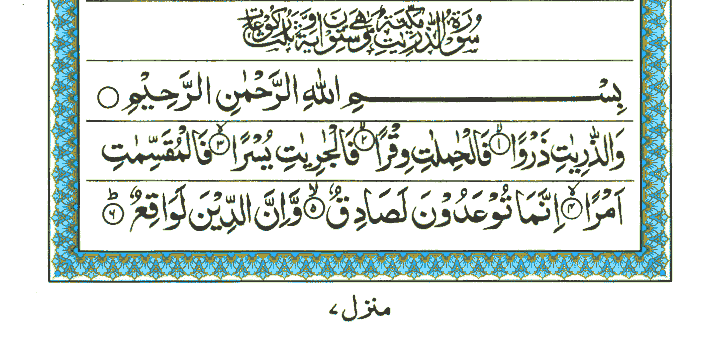 سورة الذريت مكية وهي ستون اية وثلث ركوعات
بِسْمِ اللهِ الرَّحْمٰنِ الرَّحِيْمِ ○
وَالذّٰرِيٰتِ ذَرْوًا ۙ﴿۱﴾ فَالْحٰمِلٰتِ وِقْرًا ۙ﴿۲﴾ فَالْجٰرِيٰتِ يُسْرًا ۙ﴿۳﴾ فَالْمُقَسِّمٰتِ
اَمْرًا ۙ﴿۴﴾ اِنَّمَا تُوْعَدُوْنَ لَصَادِقٌ ۙ﴿۵﴾ وَّاِنَّ الدِّيْنَ لَوَاقِعٌ ؕ﴿۶﴾
منزل ۷